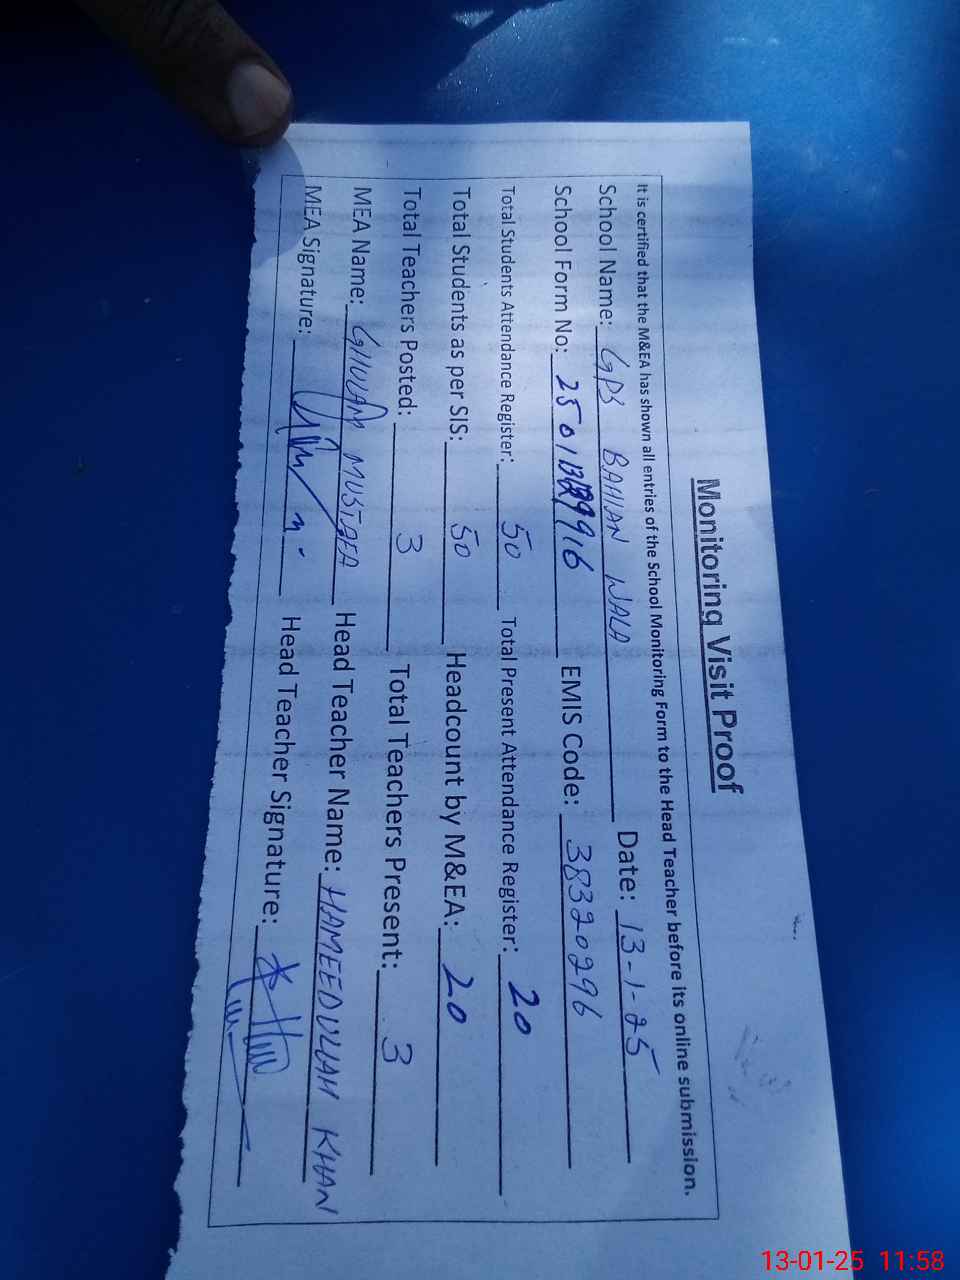 Monitoring Visit Proof
It is certified that the M&EA has shown all entries of the School Monitoring Form to the Head Teacher before its online submission.
School Name: GPS BAHIAN WALA Date: 13-1-25
School Form No: EMIS Code: 38320296
Total Students Attendance Register: 50 Total Present Attendance Register: 20
Total Students as per SIS: 50 Headcount by M&EA: 20
Total Teachers Posted: 3 Total Teachers Present: 3
MEA Name: GHULAM MUSTAFA Head Teacher Name: HAMEEDULLAH KHAN
MEA Signature: Head Teacher Signature:
13-01-25 11:58